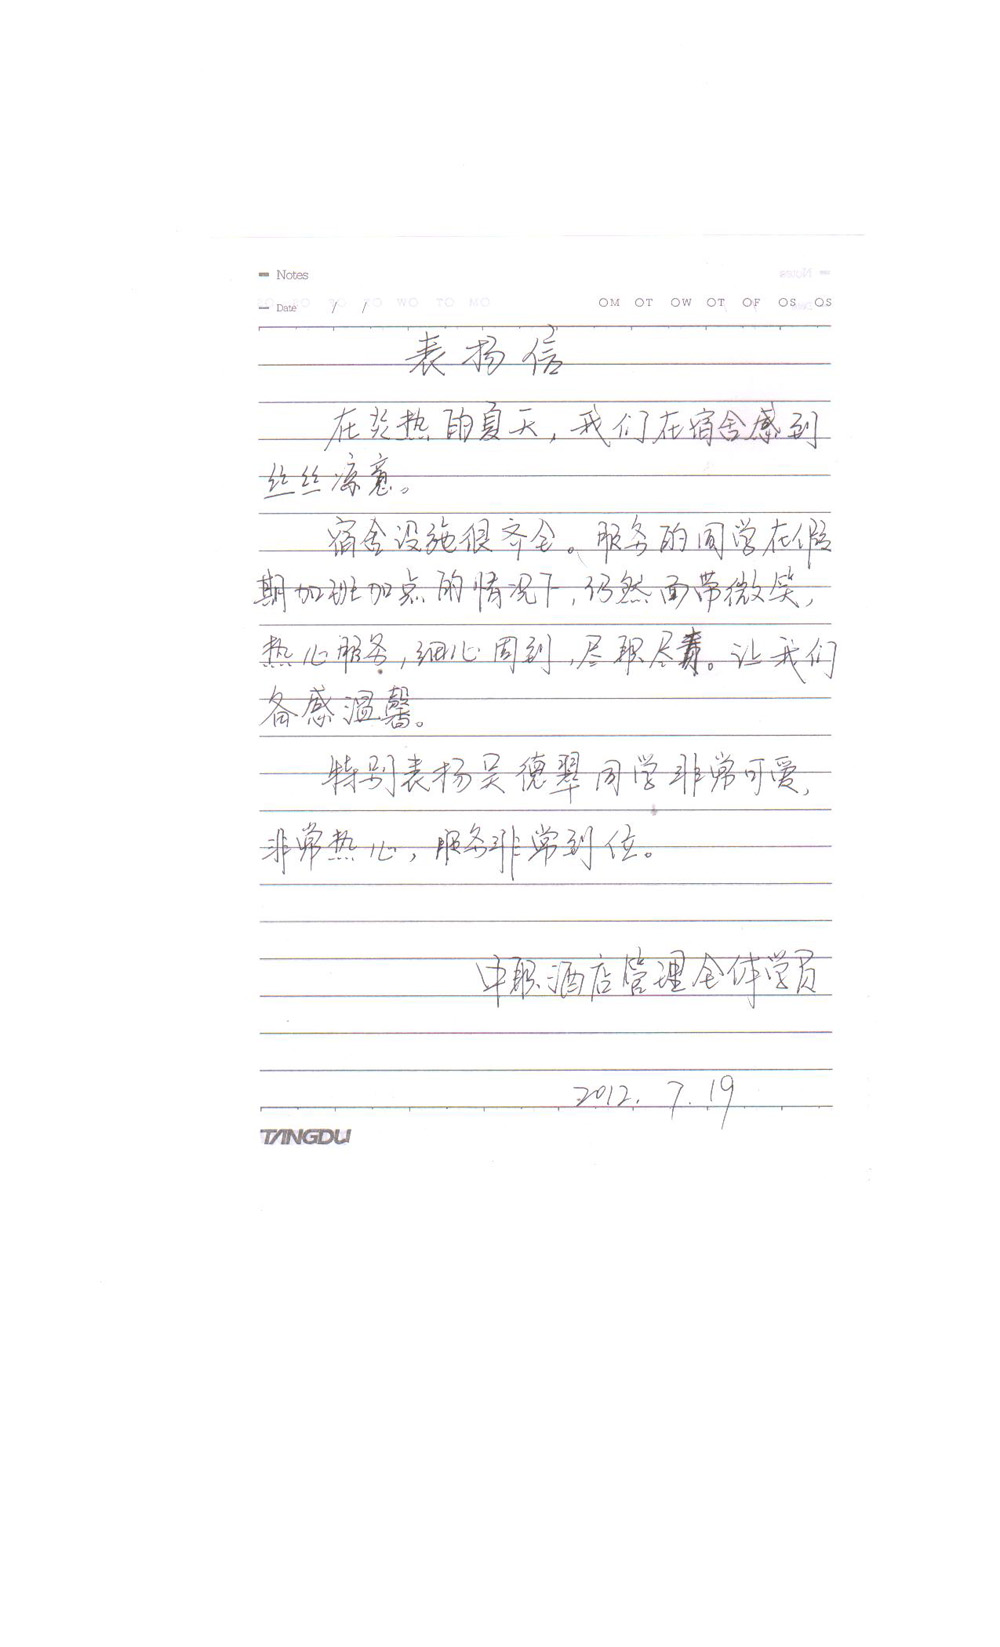 Notes
Date / / OM OT OW OT OF OS OS
表扬信
在炎热的夏天，我们在宿舍感到
丝丝凉意。
宿舍设施很齐全。服务的同学在假
期加班加点的情况下，仍然面带微笑，
热心服务，细心周到，尽职尽责。让我们
备感温馨。
特别表扬吴德翠同学非常可爱，
非常热心，服务非常到位。
中职酒店管理全体学员
2012.7.19
TANGDU